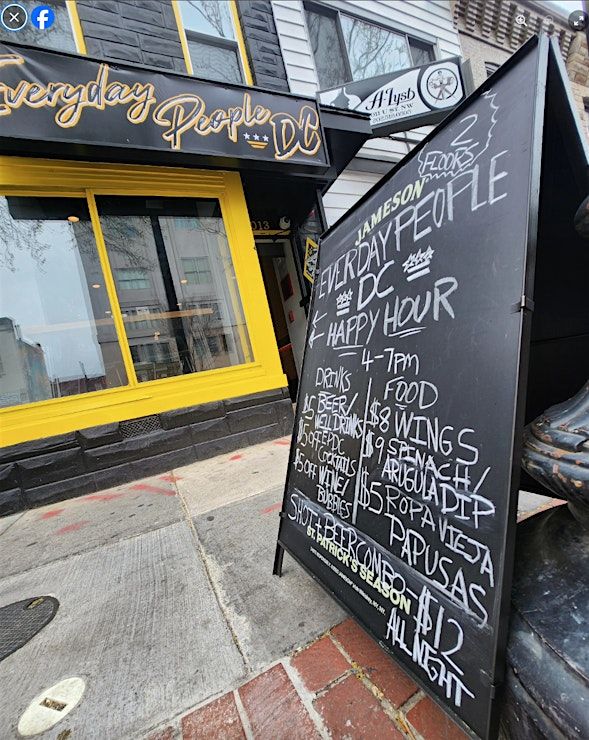 Everyday People DC
A-lysb
U ST. NW
013
2
FLOORS
JAMESON
EVERDAY PEOPLE
DC
HAPPY HOUR
4-7PM
DRINKS
$5 BEER/
WELL DRINKS
$5 OFF EPDC
COCKTAILS
$5 OFF WINE/
BUBBLES
FOOD
$8 WINGS
$9 SPINACH/
ARUGULA DIP
$5 ROPA VIEJA
PAPUSAS
SHOT + BEER COMBO - $12
ST. PATRICK'S SEASON
ALL NIGHT